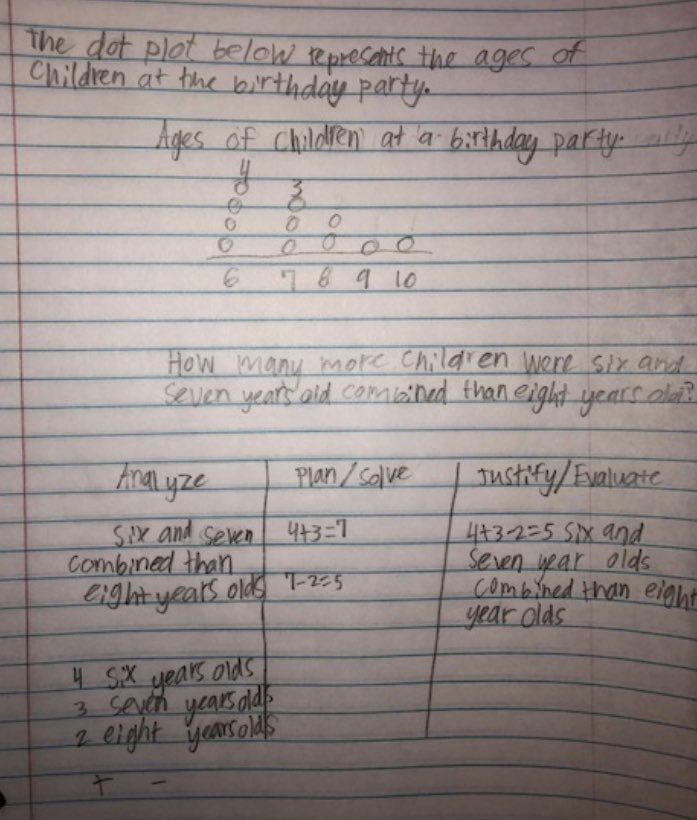 The dot plot below represents the ages of
Children at the birthday party.
Ages of Children at a birthday party.
4 3
6 7 8 9 10
How many more Children were six and
Seven years old combined than eight years old?
Analyze Plan/Solve Justify/Evaluate
Six and seven 4+3=7 4+3-2=5 six and
combined than Seven year olds
eight years olds 7-2=5 combined than eight
year olds
4 six years olds
3 seven years olds
2 eight years olds
+ -